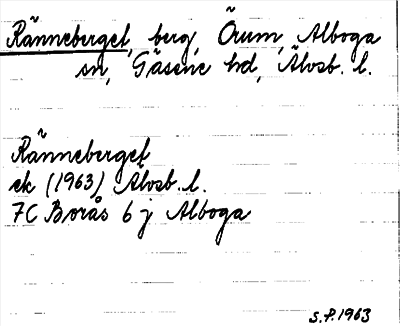 Ränneberget, berg, Örum, Alboga
sn, Gäsene hd, Älvsb. l.
Ränneberget
ek (1963) Älvsb. l.
7C Borås 6 j Alboga
S.P. 1963